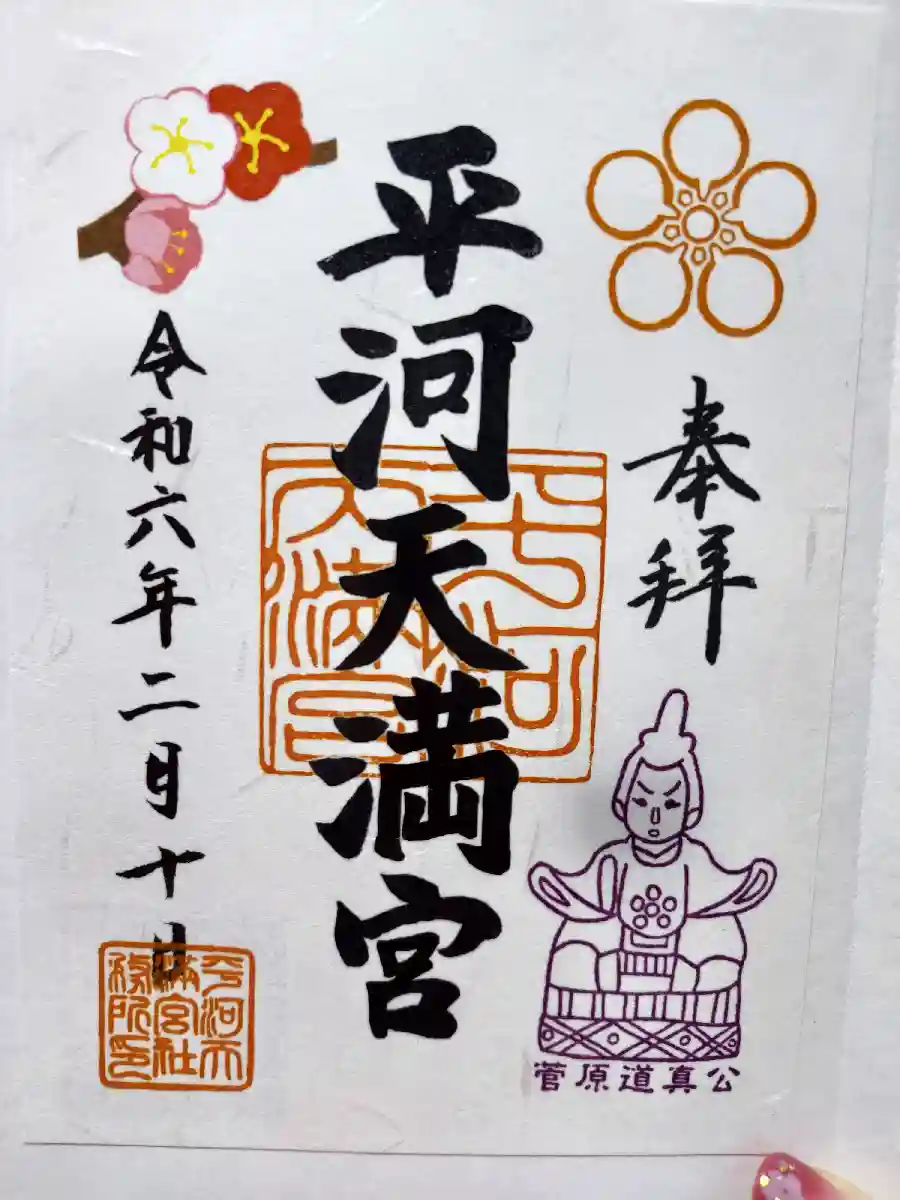 奉拝
平河天満宮
令和六年二月十日
菅原道真公
平河天満宮
平河天満宮社務所印